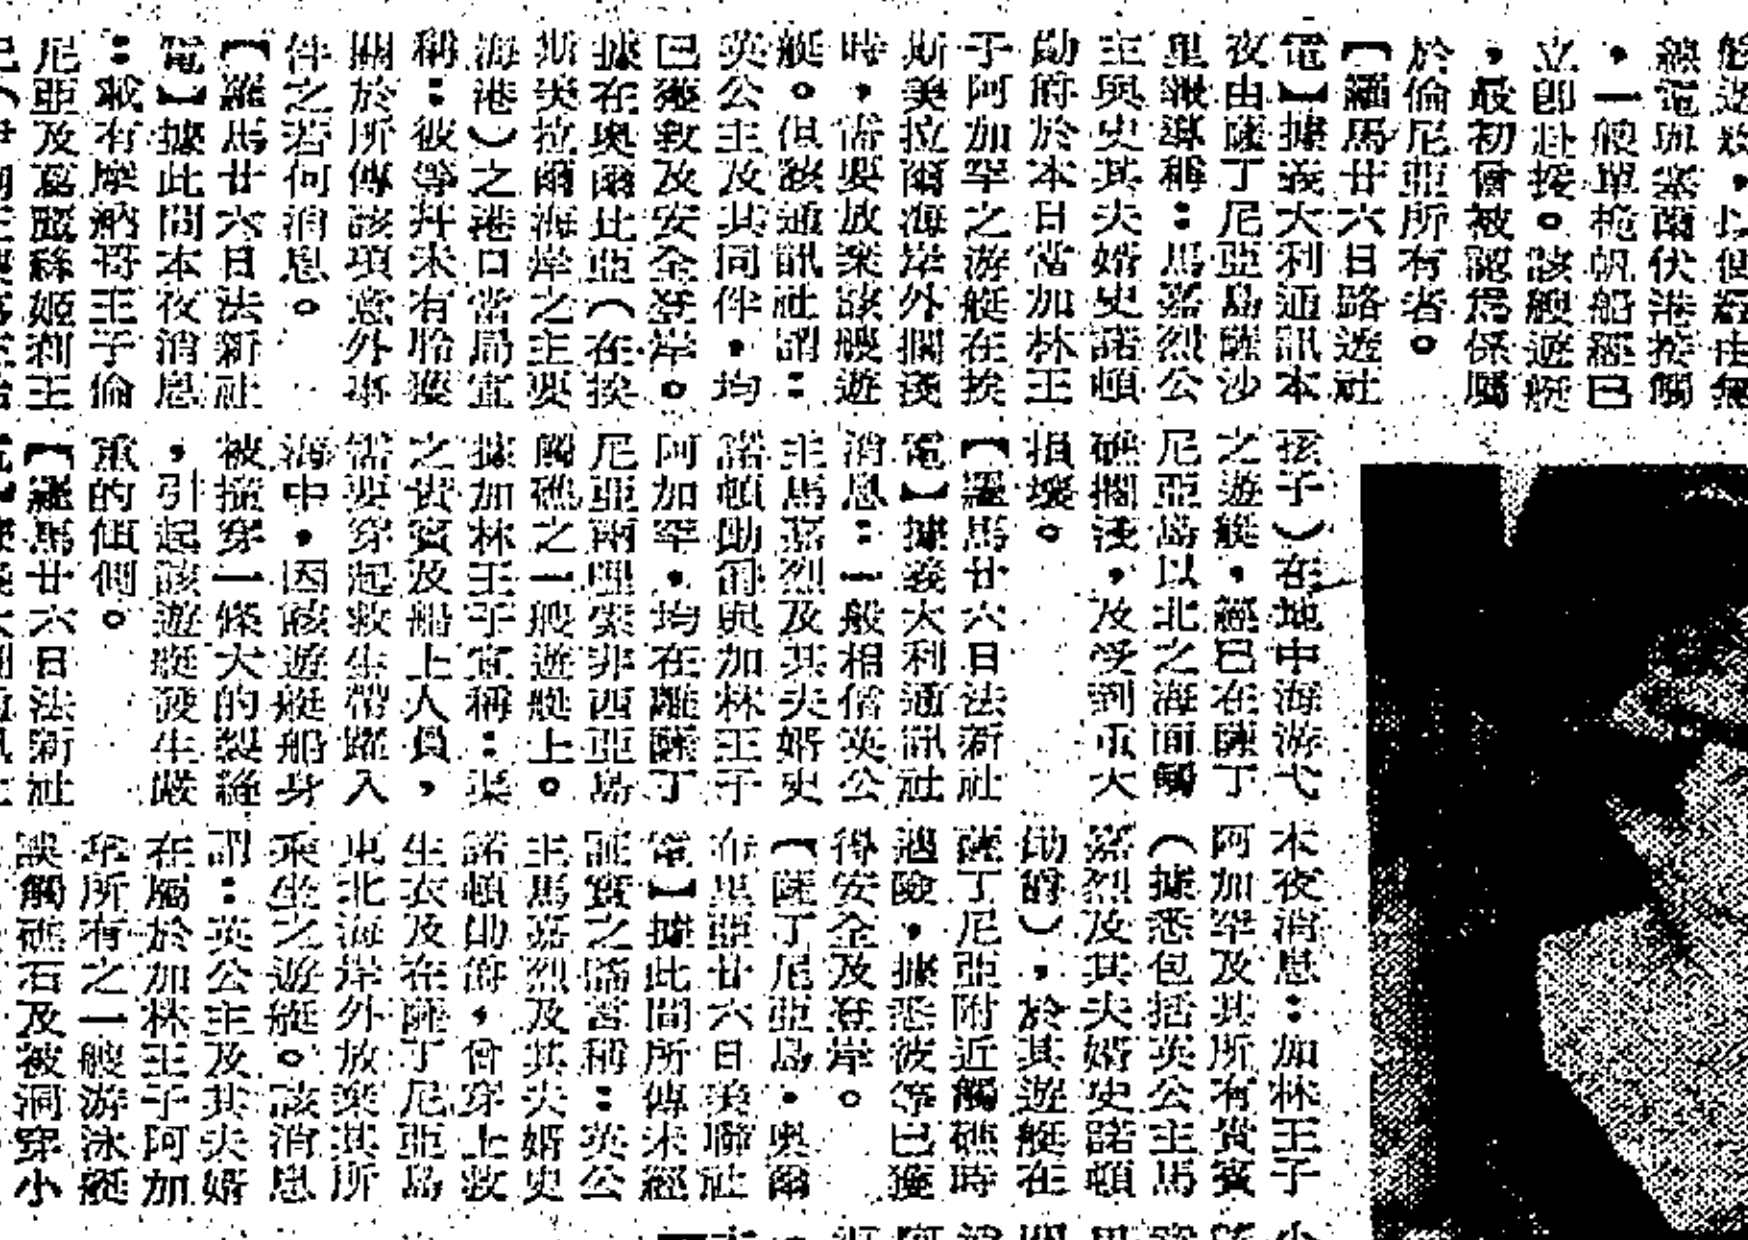 線電與塞爾伏港接觸
，一般單桅帆船經已
立即赴援。該艘遊艇
，最初會被認爲係屬
於倫尼亞所有者。
【羅馬廿六日路遊社
電】據義大利通訊本
夜由薩丁尼亞島薩沙
里報導稱：馬嘉烈公
主與史其夫婿史諾頓
勛爵於本日當加林王
子阿加罕之游艇在挨
斯美拉爾海岸外擱淺
時，需要放棄該艘遊
艇。但該通訊社謂：
英公主及其同伴，均
已獲救及安全登岸。
據在奧爾比亞（在挨
斯美拉爾海岸之主要
海港）之港口當局宣
稱：彼等幷未有聆獲
關於所傳該項意外事
件之若何消息。
【羅馬廿六日法新社
電】據此間本夜消息
：載有摩納哥王子倫
尼亞及嘉麗絲姬利主
孩子）在地中海游弋
之遊艇，經已在薩丁
尼亞島以北之海面觸
礁擱淺，及受到重大
損壞。
【羅馬廿六日法新社
電】據義大利通訊社
消息：一般相信英公
主馬嘉烈及其夫婿史
諾頓勛爵與加林王子
阿加罕，均在離薩丁
尼亞兩哩索非西亞島
觸礁之一般遊艇上。
據加林王子宣稱：渠
之貴賓及船上人員，
需要穿起救生帶躍入
海中，因該遊艇船身
被撞穿一條大的裂縫
，引起該遊艇發生嚴
重的傾側。
【羅馬廿六日法新社
本夜消息：加林王子
阿加罕及其所有貴賓
（據悉包括英公主馬
嘉烈及其夫婿史諾頓
勛爵），於其遊艇在
薩丁尼亞附近觸礁時
遇險，據悉彼等已獲
得安全及登岸。
【薩丁尼亞島．奧爾
布里亞廿六日美聯社
電】據此間所傳未經
証實之廣言稱：英公
主馬嘉烈及其夫婿史
諾頓勛爵，曾穿上救
生衣及在薩丁尼亞島
東北海岸外放棄其所
乘坐之遊艇。該消息
謂：英公主及其夫婿
在屬於加林王子阿加
罕所有之一艘游泳艇
誤觸礁石及被洞穿小